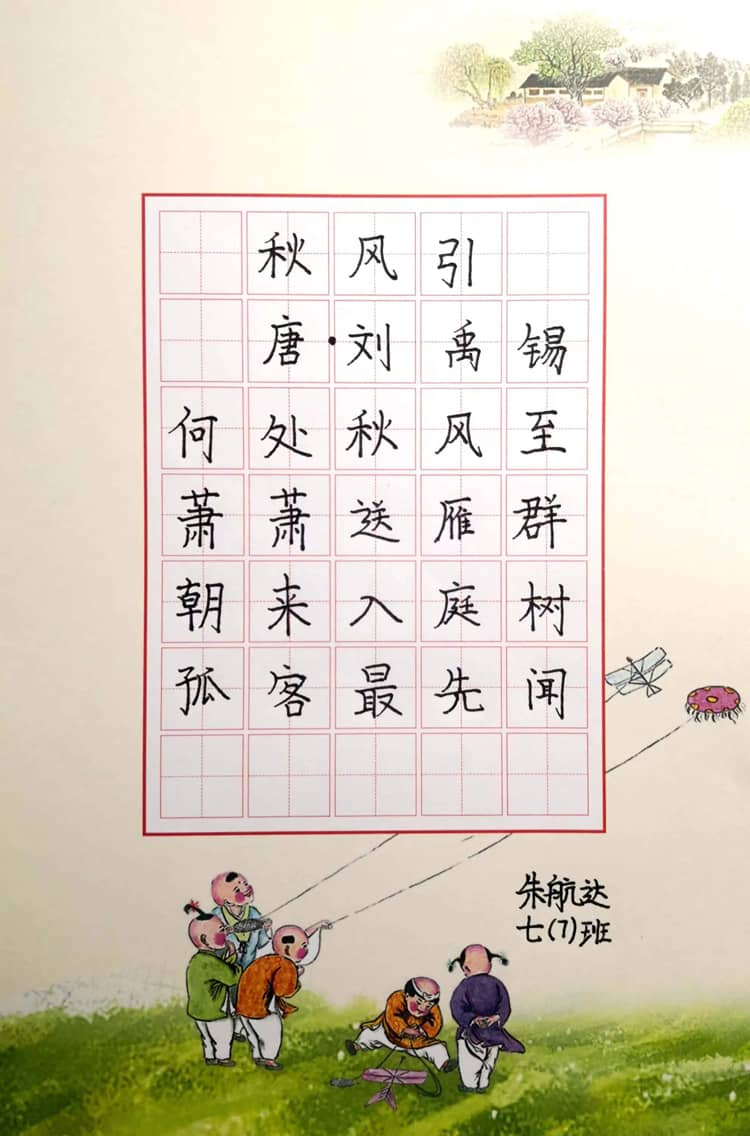 秋风引
唐·刘禹锡
何处秋风至
萧萧送雁群
朝来入庭树
孤客最先闻
朱航达
七(7)班